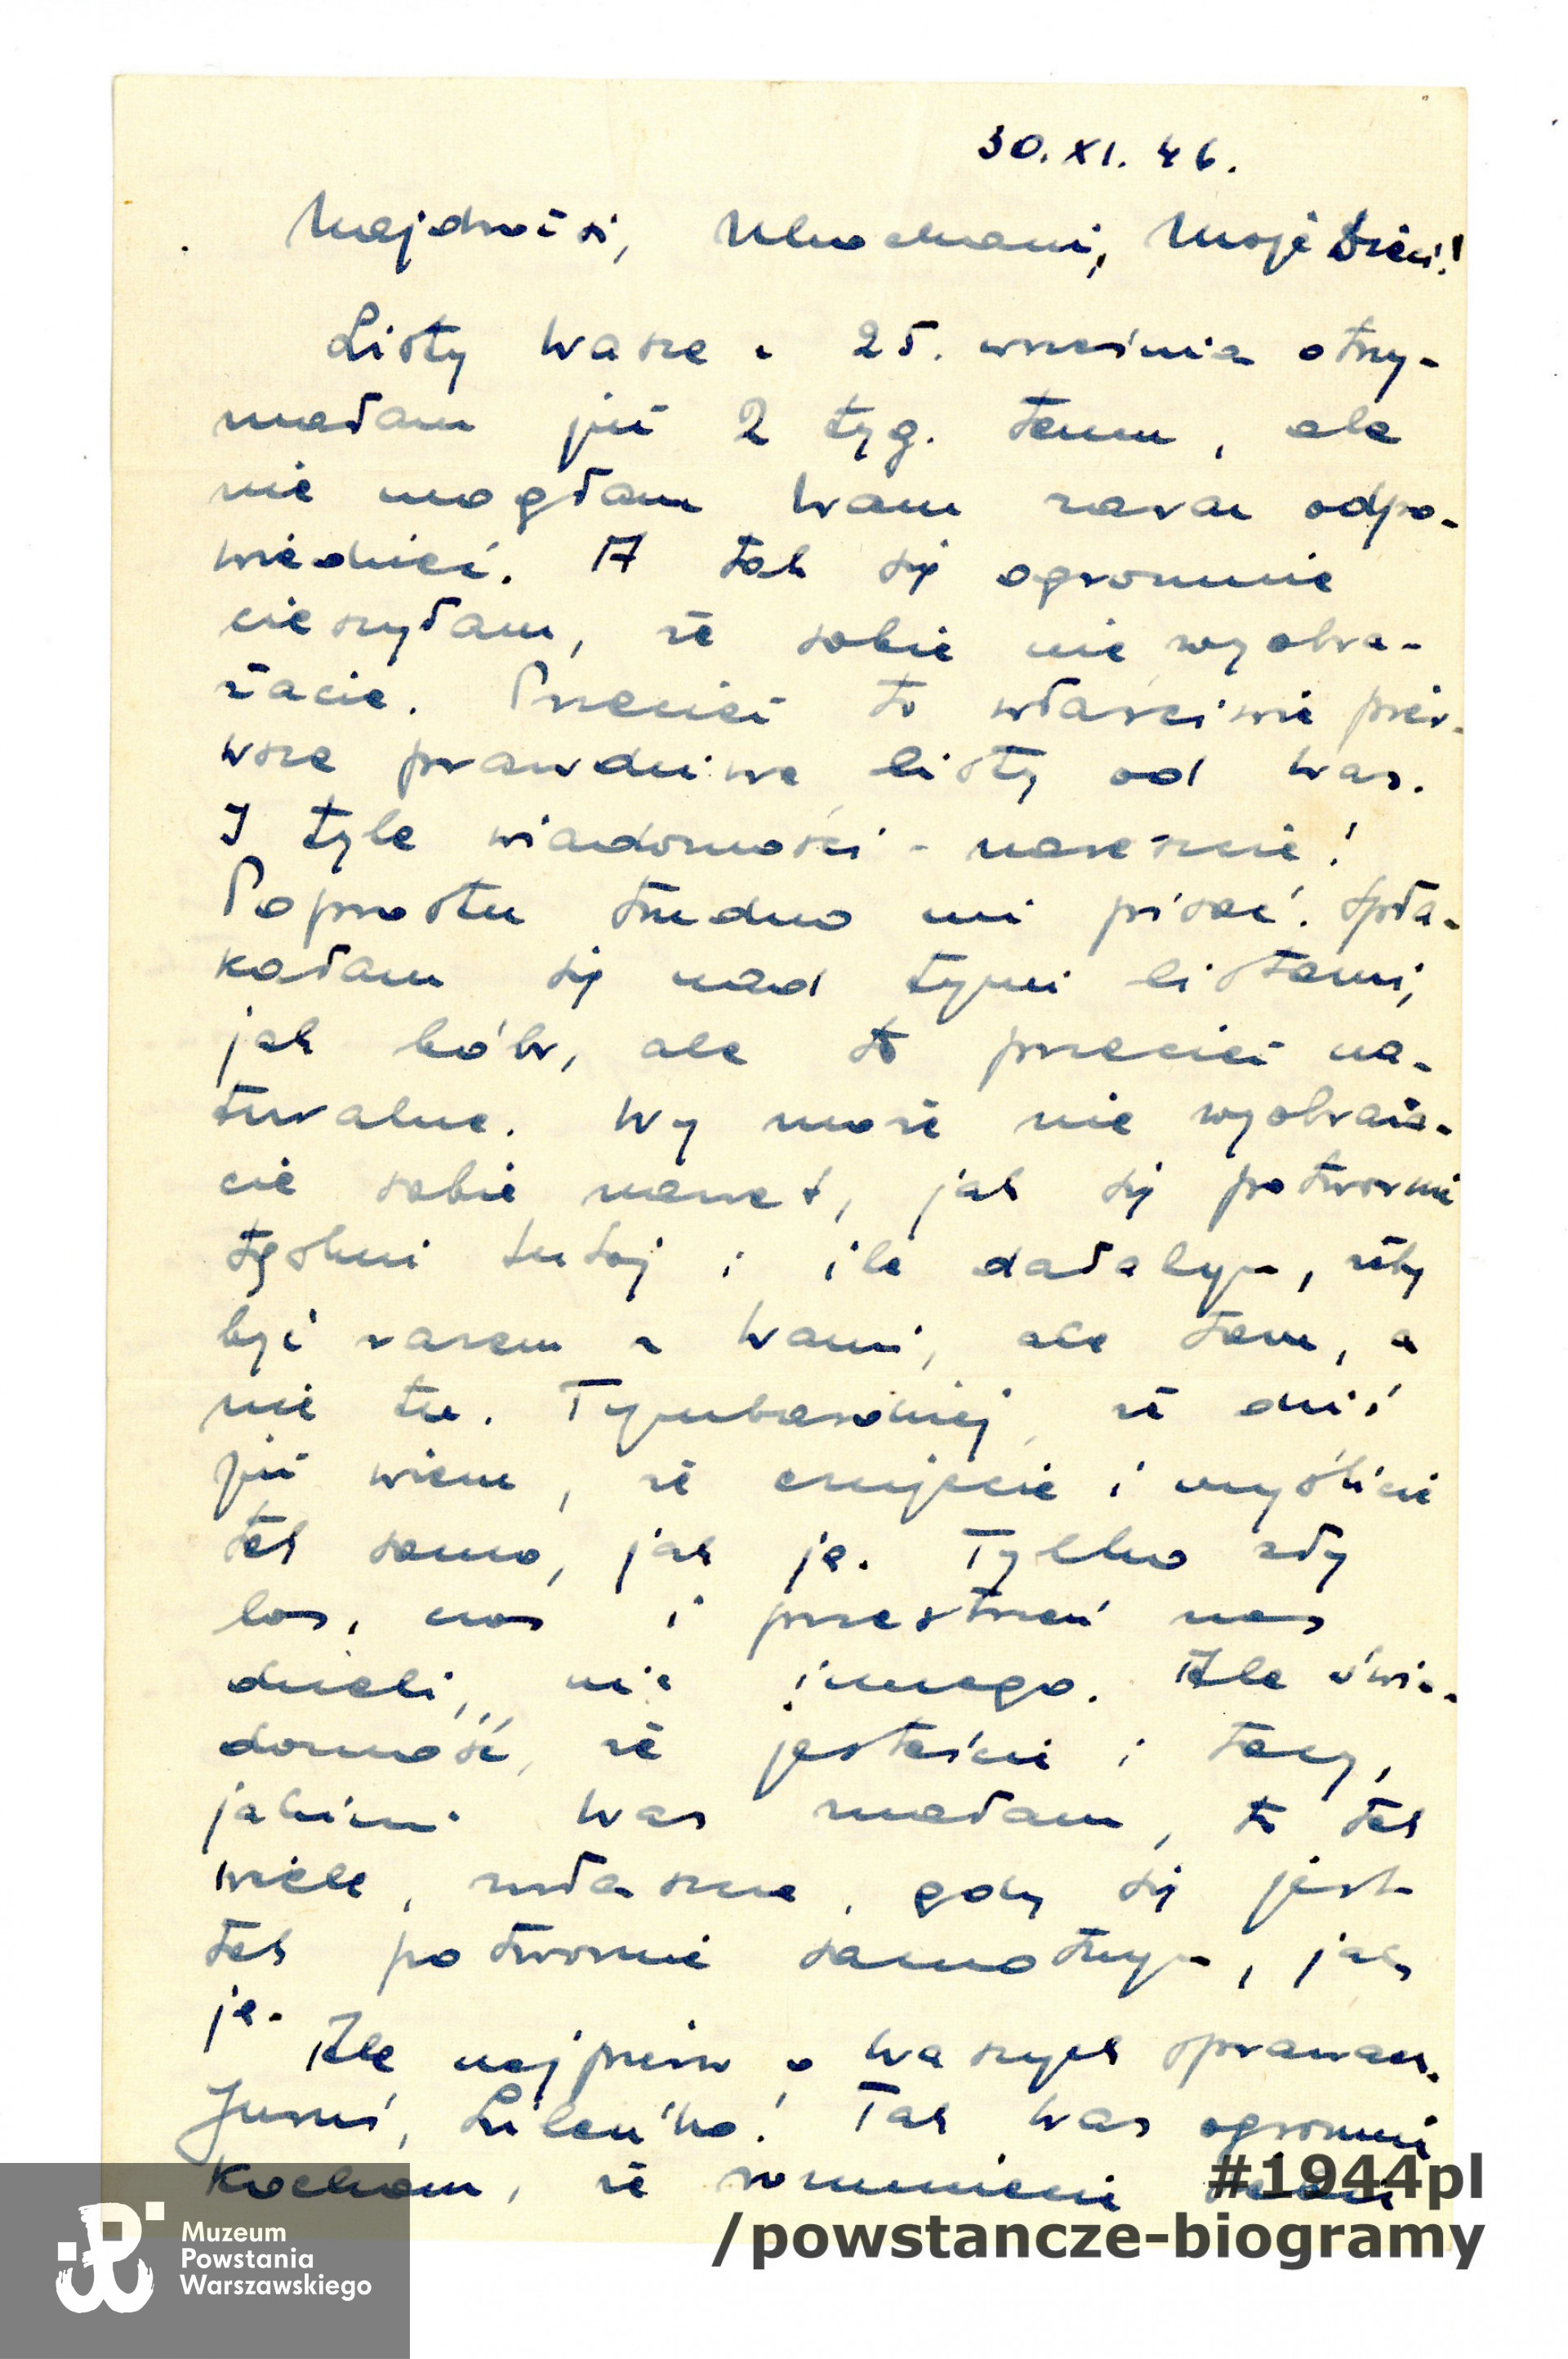 30.XI.46.
Najdrożsi, Ukochani, Moje Dzieci!
Listy Wasze z 25. września otrzy-
małam już 2 tyg. temu, ale
nie mogłam Wam zaraz odpo-
wiedzieć. A tak się ogromnie
cieszyłam, że sobie nie wyobra-
żacie. Przecież to właściwie pier-
wsze prawdziwe listy od Was.
I tyle wiadomości - nareszcie!
Poprostu trudno mi pisać. Spła-
kałam się nad tymi listami,
jak bóbr, ale to przecież na-
turalne. Wy może nie wyobraża-
cie sobie nawet, jak się potwornie
tęskni tutaj i ile dałabym, żeby
być razem z Wami, ale tam, a
nie tu. Tymbardziej, że dziś
już wiem, że czujecie i myślicie
tak samo, jak ja. Tylko zły
los, czas i przestrzeń nas
dzieli, nic innego. Ale świa-
domość, że jesteście i tacy,
jakimi Was znałam, to tak
wiele, zwłaszcza, gdy się jest
tak potwornie samotnym, jak
ja.
Ale najpierw o Waszych sprawach.
Juruś, Lileńko! Tak Was ogromnie
kocham, że rozumiecie
#1944pl
/powstancze-biogramy
Muzeum
Powstania
Warszawskiego